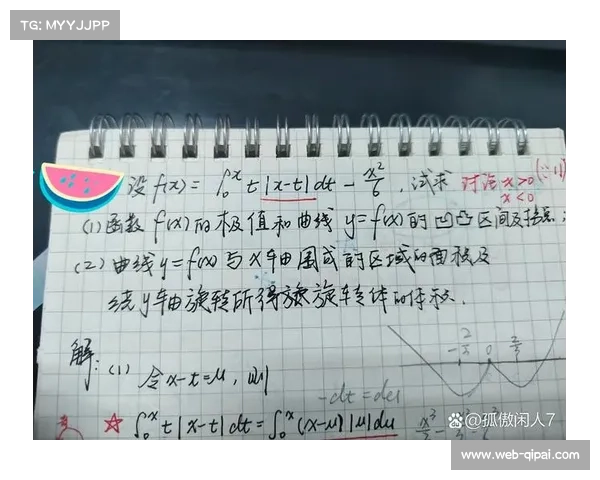 TG: MYYJJPP
设 f(x) = ∫₀ˣ t|x-t|dt - x²/6 , 试求 讨论 x>0
x<0
(1) 函数 f(x) 的极值和曲线 y=f(x) 的凹凸区间及拐点;
(2) 曲线 y=f(x) 与 x 轴围成的区域的面积及
绕 y 轴旋转所得旋转体的体积.
解: (1) 令 x-t=u, 则
-2/3 0 2/3
-dt = du
☆ ∫₀ˣ t|x-t|dt = ∫₀ˣ (x-u)|u|du
@孤傲闲人7
www-web-qipai.com